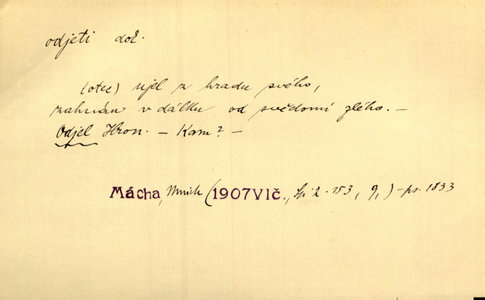 odjeti dož.
(otec) ujel z hradu svého,
zahnán v dálku od svědomí zlého. —
Odjel Hron. — Kam? —
Mácha, Mnich (1907Vlč., Sp 2. 153, 9,) – ps. 1833